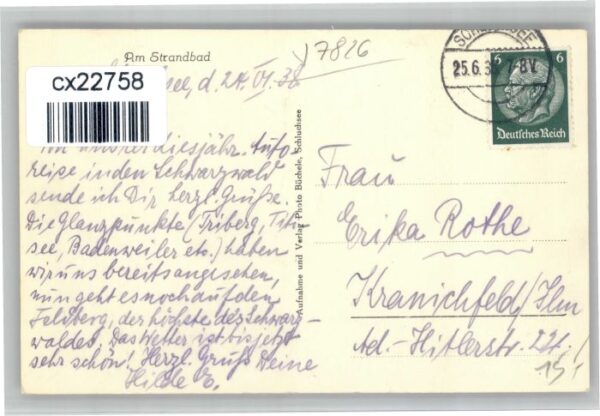 Am Strandbad
7826
cx22758
see, d. 24. VI. 38
SCHLUCHSEE
25.6.3 7-8V
6 6
Deutsches Reich
diesjähr. Auto-
reise in den Schwarzwald
sende ich Dir herzl. Grüße.
Die Glanzpunkte (Triberg, Titi-
see, Badenweiler etc.) haben
wir uns bereits angesehen,
nun geht es noch auf den
Feldberg, der höchste des Schwarz-
waldes. Das Wetter ist bis jetzt
sehr schön! Herzl. Gruß Deine
Hilde E.
Aufnahme und Verlag Photo Büchele, Schluchsee
Frau
Erika Rothe
Kranichfeld/Ilm
Ad.-Hitlerstr. 221